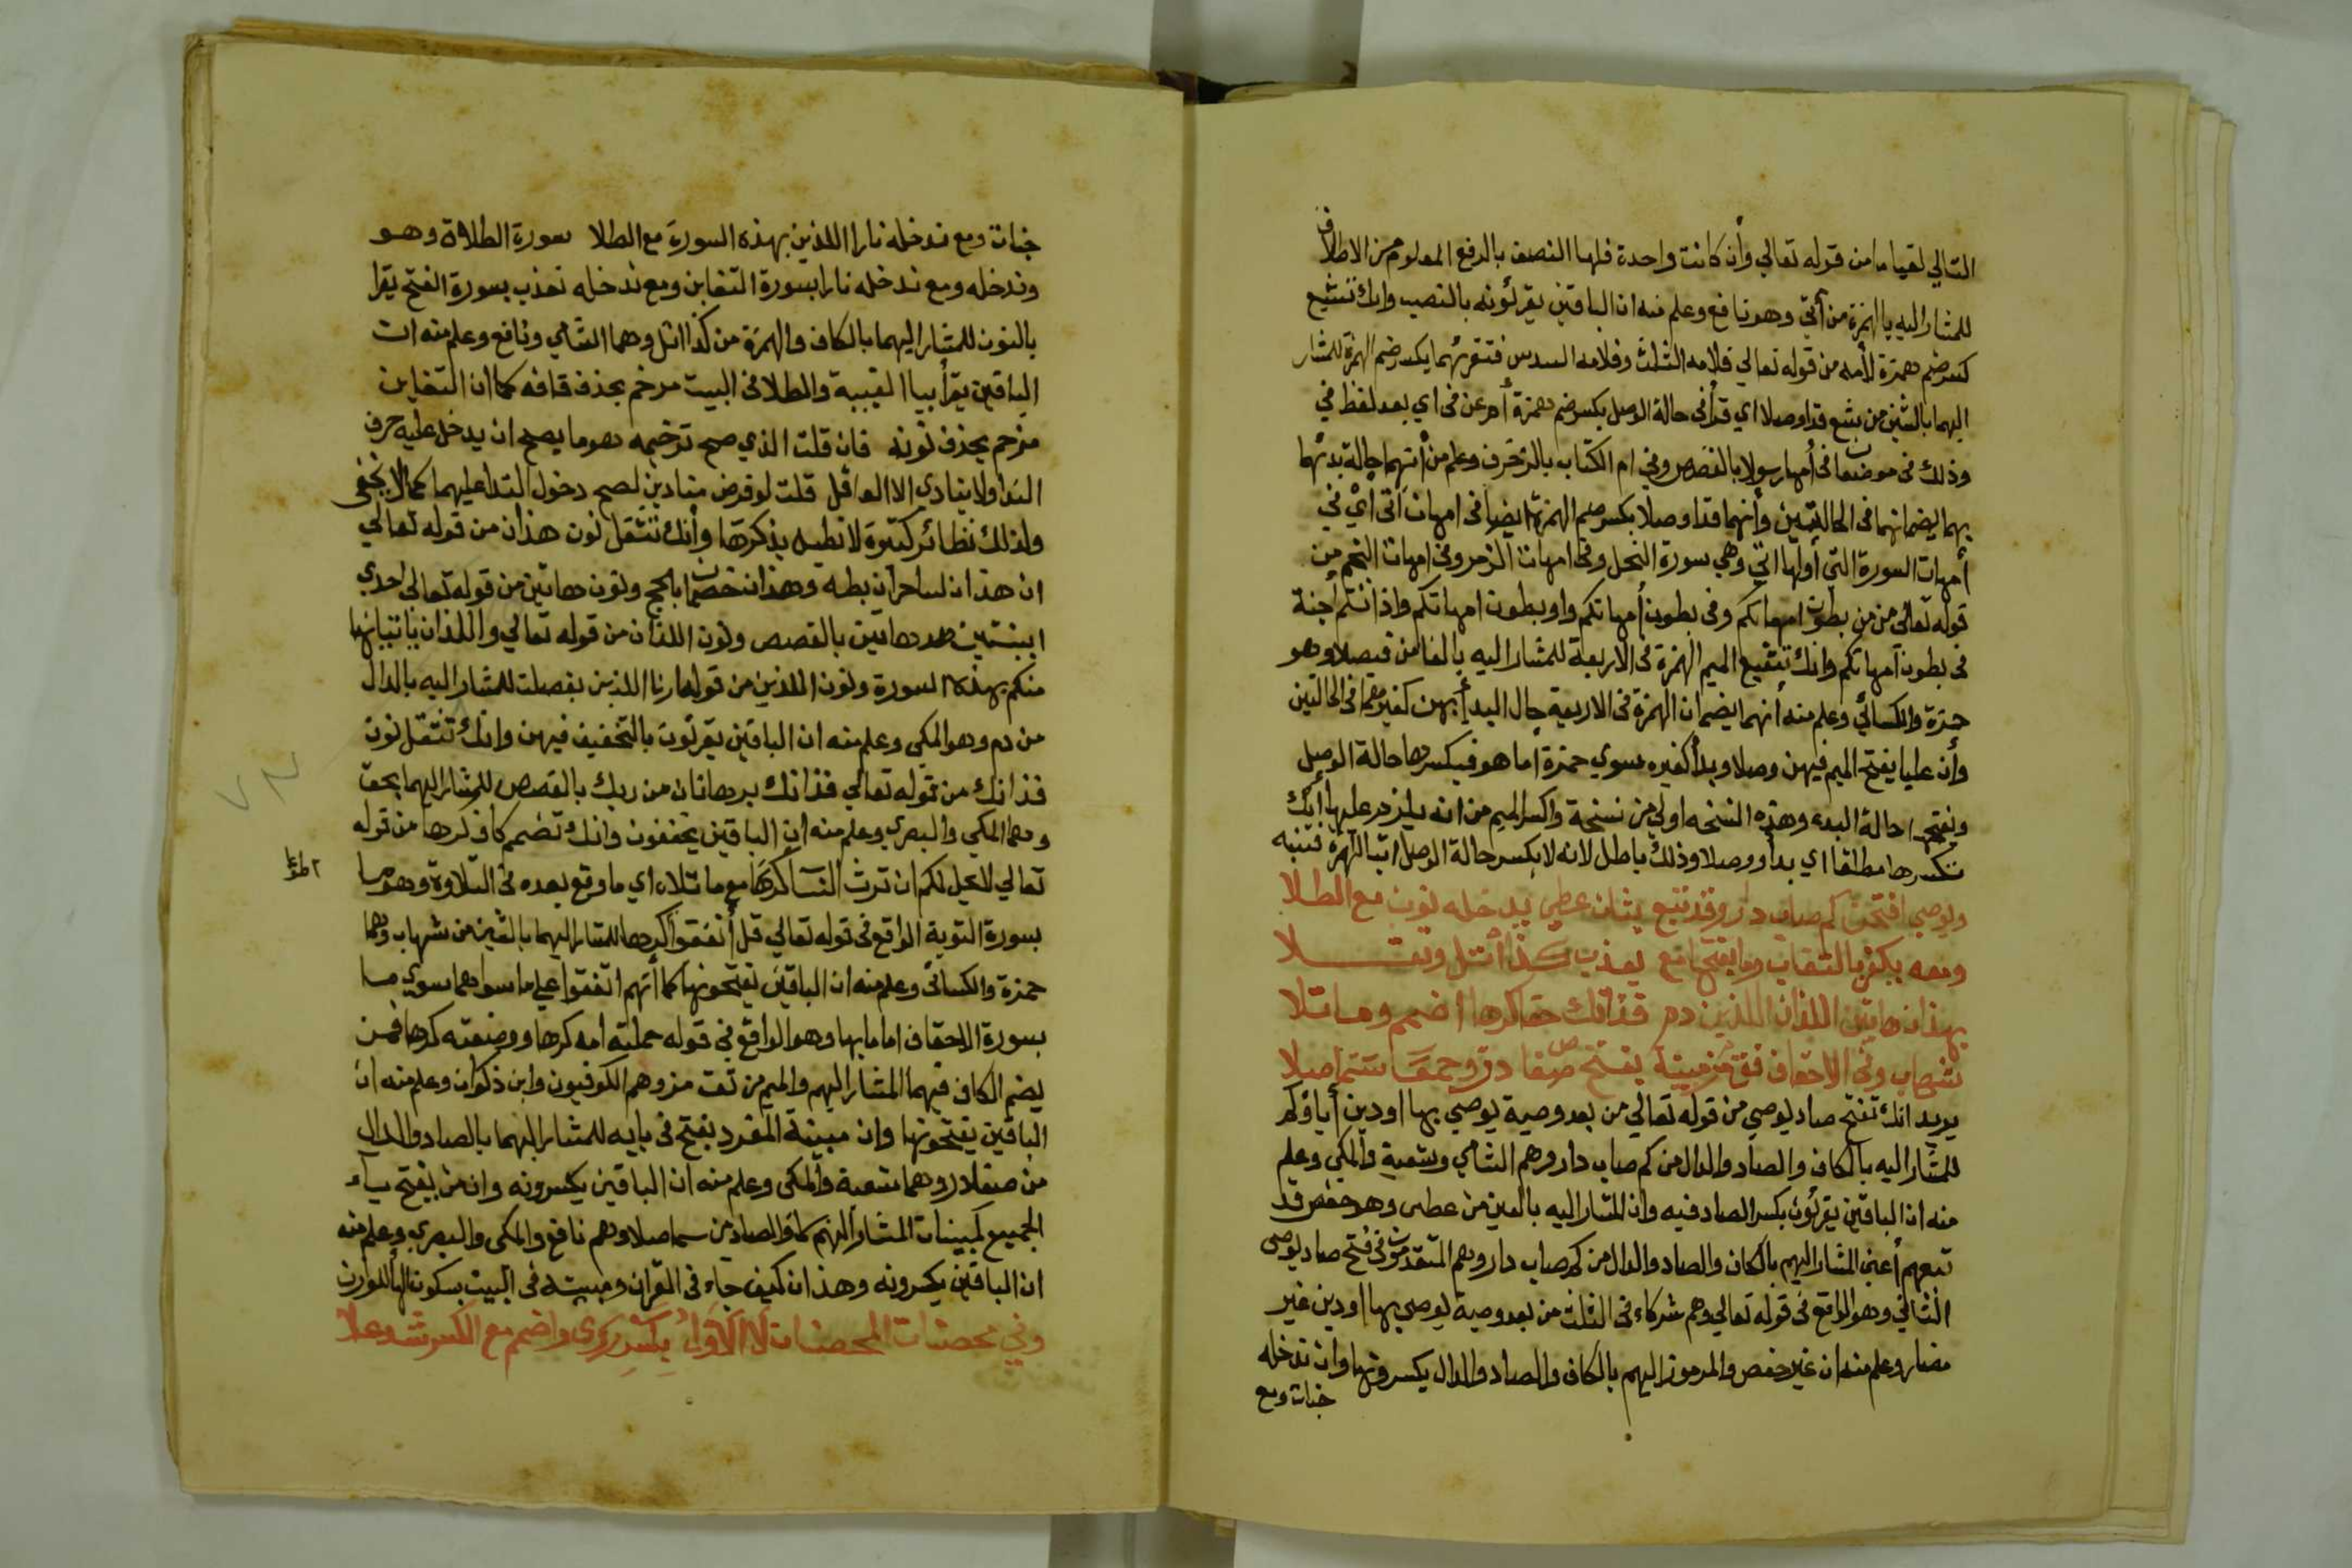 التالي لقياما من قوله تعالي وأن كانت واحدة فلها النصف بالرفع المعلوم من الاطلاق
للمشار اليه بالهمزة من أتي وهو نافع وعلم منه ان الباقين يقرئونه بالنصب وانك تشيع
كسر ضم همزة لأمه من قوله تعالي فلامه الثلث وفلامه السدس فتقرئهما بكسر ضم الهمزة للمشار
اليهما بالشين من شع قد اوصلا اي قرأ في حالة الوصل بكسر ضم همزة أم عن في اي بعد لفظ في
وذلك في موضعان في أمها رسولا بالقصص وفي ام الكتاب بالزخرف وعلم من أنهما حالة بدئهما
بهما يضمانهما في الحالتين وأنهما قدا وصلا بكسر ضم الهمزة ايضا في امهات اتي أي في
أمهات السورة التي أولها اتي وهي سورة النحل وفي امهات الزمر وفي امهات النجم من
قوله تعالي من من بطون امهاتكم وفي بطون أمهاتكم واو بطون امهاتكم واذ انتم أجنة
في بطون أمهاتكم وانك تشيع الميم الهمزة في الاربعة للمشار اليه بالفا من فيصلا وهو
حمزة والكسائي وعلم منه أنهما يضمان الهمزة في الاربعة حال البدأ بهن كغيرهما في الحالتين
وأن عليا يفتح الميم فيهن وصلا وبدأ كغيره سوي حمزة أما هو فيكسرها حالة الوصل
ويفتحها حالة البدء وهذه النسخه اولي من نسخة واكسر الميم من انه يلزم عليها أنك
تكسرها مطلقا اي بدأ ووصلا وذلك باطل لانه لا يكسر حالة الوصل اتبا الهمزة فتنبه
ويوصي افتحن كم صاب دار وقد تبع بثان عطي يدخله نون مع الطلا
ومعه يكفر بالتغابن وما بفتح مع يعذب كذا أتل وثقلا
بهذان هاتين اللذان اللذين دم فذانك حق اكرها اضمم وما تلا
شهاب وفي الاحقاف فق من مبينة بفتح صفا دق وجمعا سما صلا
يريد انك تفتح صاد يوصي من قوله تعالي من بعد وصية يوصي بها او دين أباؤكم
للمشار اليه بالكاف والصاد والدال من كم صاب دار وهم الشامي وشعبة والمكي وعلم
منه ان الباقين يقرئون بكسر الصاد فيه وان المشار اليه بالعين من عطي وهو حفص قد
تبعهم أعني المشار اليهم بالكاف والصاد والدال من كم صاب دار وهم المتقدمون في فتح صاد يوصي
الثاني وهو الواقع في قوله تعالي وهم شركاء في الثلث من بعد وصية يوصي بها او دين غير
مضار وعلم منه ان غير حفص والمرموز اليهم بالكاف والصاد والدال يكسرونها وان ندخله
جنات ومع
جنات ومع ندخله نارا اللذين بهذه السورة مع الطلا سورة الطلاق وهو
وندخله ومع ندخله نارا بسورة التغابن ومع ندخله نعذب بسورة الفتح يقرا
بالنون للمشار اليهما بالكاف والهمزة من كذا اتل وهما الشامي ونافع وعلم منه ان
الباقين يقرأ بياا لغيبة والطلا في البيت مرخم بحذف قافه كما ان التغابن
مرخم بحذف نونه فان قلت الذي صح ترخيمه هو ما يصح ان يدخل عليه حرف
الندا ولا ينادي الا العاقل قلت لو فرض منادين لصح دخول الندا عليهما كما لا يخفى
ولذلك نظائر كثيرة لا نطيل بذكرها وأنك تثقل نون هذان من قوله تعالي
ان هذان لساحران بطه وهذان خصمان بالحج ونون هاتين من قوله تعالى احدي
ابنتي هاتين بالقصص ونون اللذان من قوله تعالي واللذان ياتيانها
منكم بهذه السورة ونون اللذين من قوله ارنا اللذين بفصلت للمشار اليه بالدال
من دم وهو المكي وعلم منه ان الباقين يقرئون بالتخفيف فيهن وانك تثقل نون
فذانك من قوله تعالي فذانك برهانان من ربك بالقصص للمشار اليهما بحق
وهما المكي والبصري وعلم منه ان الباقين يخففون وانك تضم كاف كرها من قوله
تعالي لا يحل لكم ان ترثو النسآ كرها مع ما تلاه اي ما وقع بعده في التلاوة وهو ما
بسورة التوبة الواقع في قوله تعالي قل أنفقوا كرها للمشار اليهما بالشين من شهاب وهما
حمزة والكسائي وعلم منه ان الباقين يفتحونها كما أنهم اتفقوا علي ما سواهما سوي ما
بسورة الاحقاف اما ما بها وهو الواقع في قوله حملته امه كرها ووضعته كرها فمن
يضم الكاف فيهما المشار اليهم والميم من ثقت من وهم الكوفيون وابن ذكوان وعلم منه ان
الباقين يفتحونها وان مبينة المفرد بفتح في بايه للمشار اليهما بالصاد والدال
من صفلا روهما شعبة والمكي وعلم منه ان الباقين يكسرونه وان من يفتح ياء
الجميع لمبينات المشار اليهم كما والصاد من سما صلا وهم نافع والمكي والبصري وعلم منه
ان الباقين يكسرونه وهذان كيف جاء في القران ومبينه في البيت بسكون الهأ للوزن
وفي محصنات المحصنات لا الاول بكسر روي واضمم مع الكسر شد وعلا